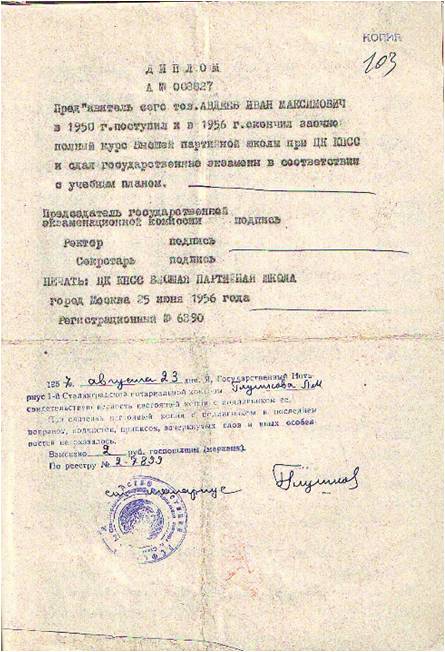 КОПИЯ
103
ДИПЛОМ
А № 008827
Пред"явитель сего тов.АВДЕЕВ ИВАН МАКСИМОВИЧ
в 1950 г.поступил и в 1956 г.окончил заочно
полный курс Высшей партийной школы при ЦК КПСС
и сдал государственные экзамены в соответствии
с учебным планом.
Председатель государственной
экзаменационной комиссии подпись
Ректор подпись
Секретарь подпись
ПЕЧАТЬ: ЦК КПСС ВЫСШАЯ ПАРТИЙНАЯ ШКОЛА
город Москва 25 июня 1956 года
Регистрационный № 6890
1957, августа 23 дня. Я, Государственный Нота-
риус 1-й Сталинградской нотариальной конторы Глушкова
свидетельствую верность настоящей копии с подлинником ее.
При сличении настоящей копии с подлинником в последнем
поправок, подчисток, приписок, зачеркнутых слов и иных особен-
ностей не оказалось.
Взыскано 2 руб. госпошлины (марками).
По реестру № 2-7899
нотариус